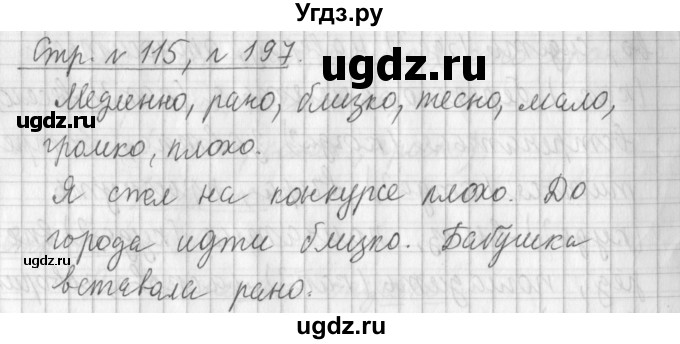 Угдз.ру
Стр. № 115, № 197.
gdz.ru
Медленно, рано, близко, тесно, мало,
ugdz.ru
громко, плохо.
ugdz.ru
Я спел на конкурсе плохо. До
города идти близко. Бабушка
ugdz.ru
вставала рано.
ugdz.ru